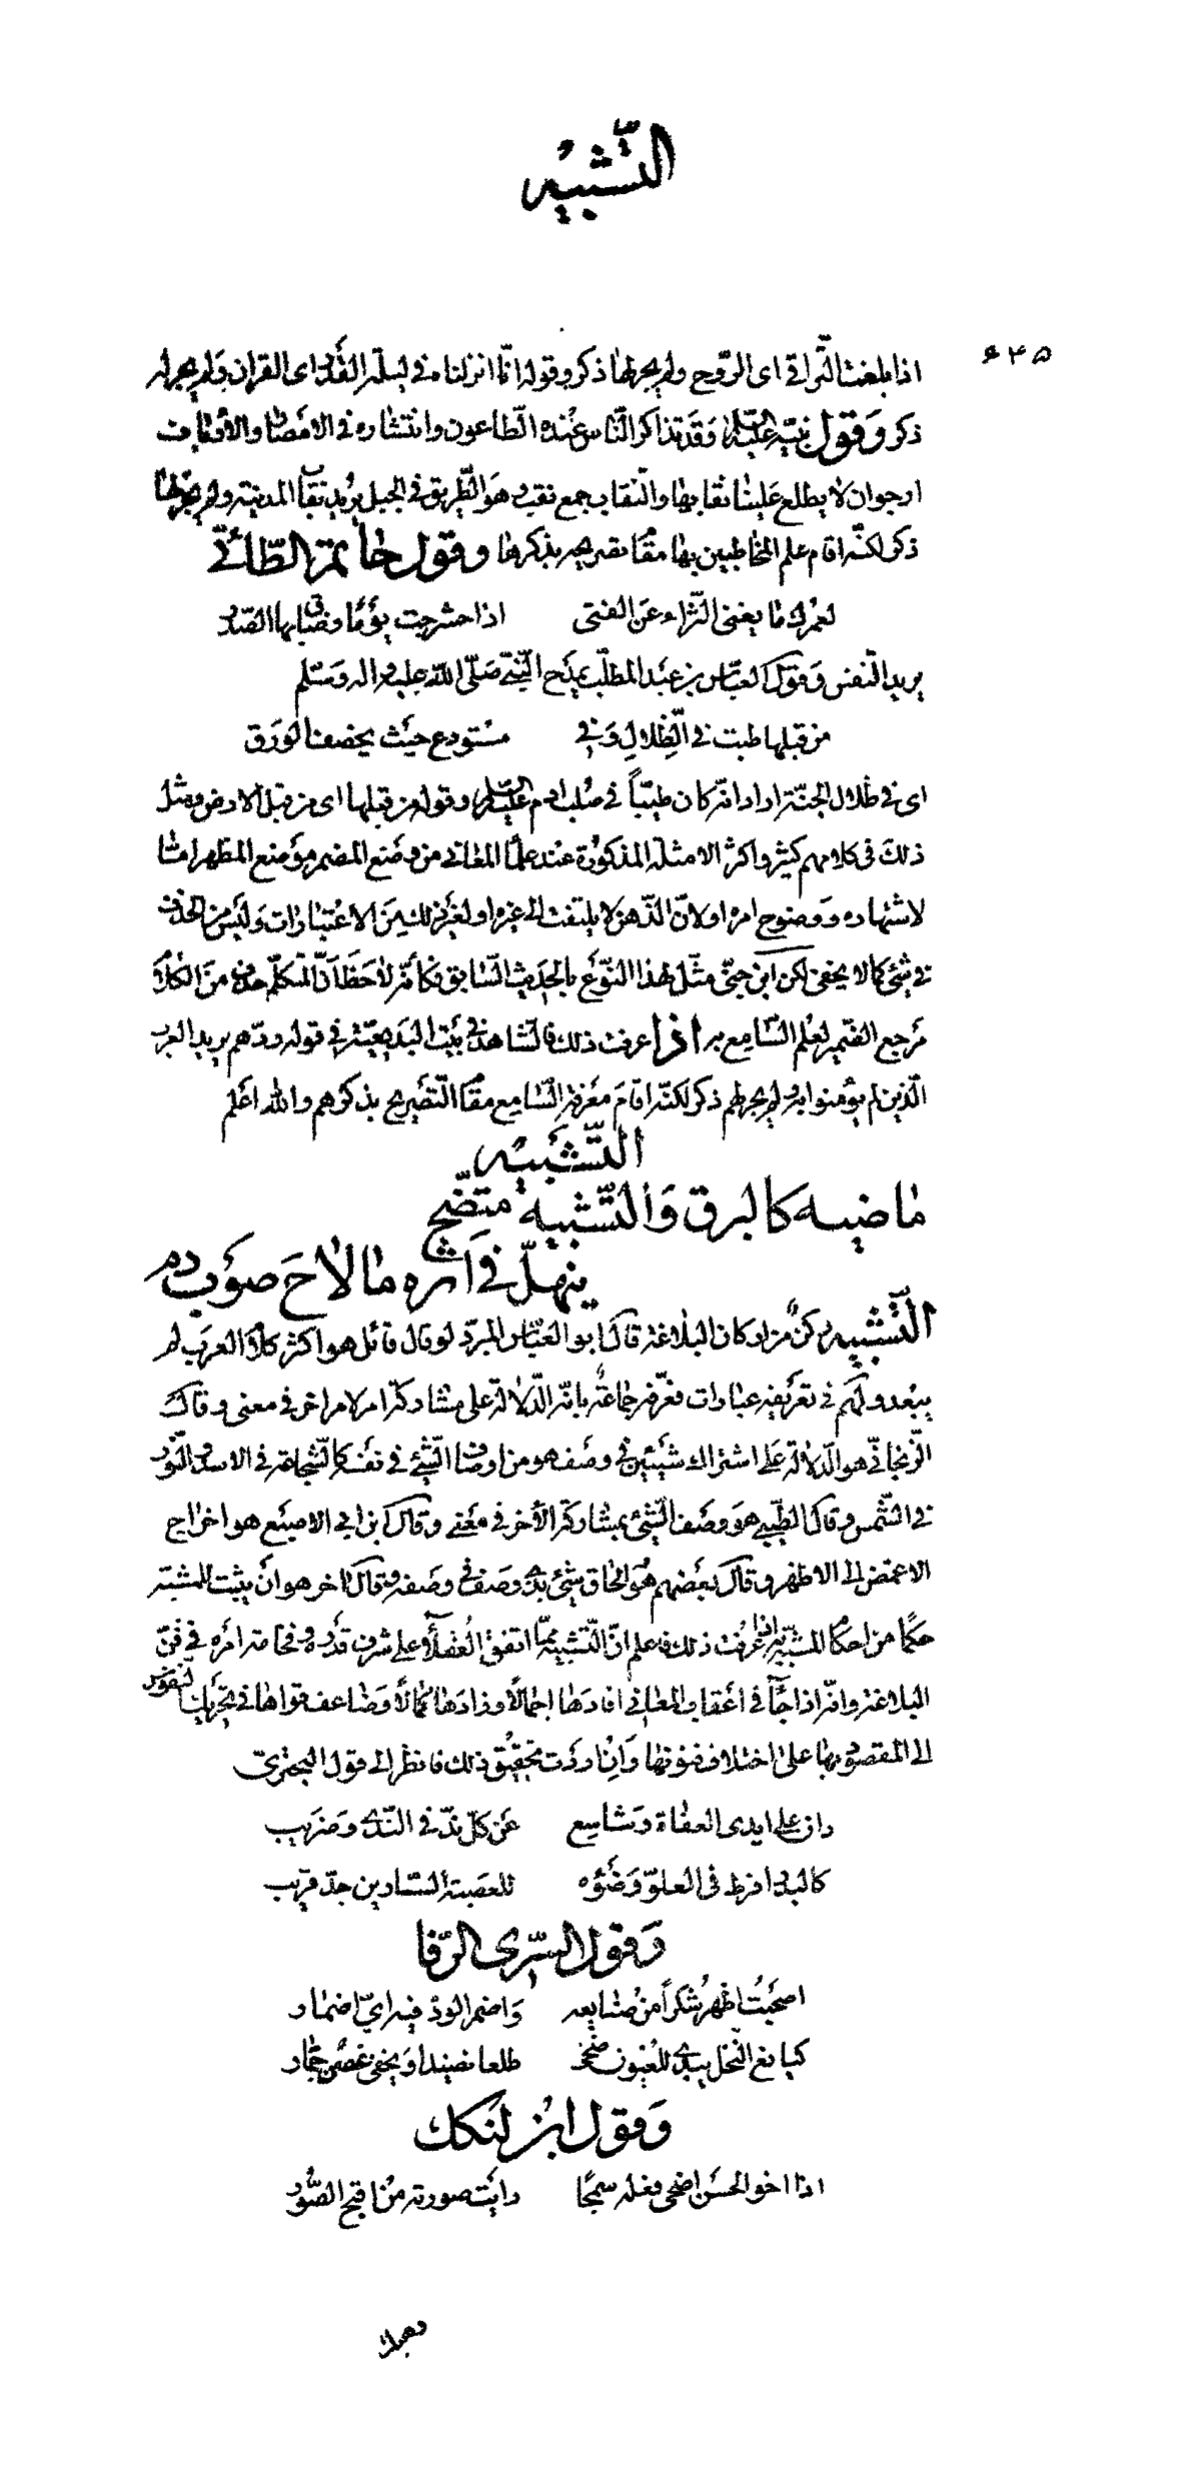 التّشبيه
٦٣٥
اذا بلغت التّراقي اى الرّوح ولم يجر لها ذكر وقوله انّا انزلناه فى ليلة القدر اى القران ولم يجر له
ذكر وقول نبيّه عليه السلم وقد تذاكر النّاس عنده الطّاعون وانتشاره فى الامصار والأرياف
ارجوان لا يطلع علينا نقابها والنّقاب جمع نقب وهو الطّريق فى الجبل يريد نقاب المدينة ولم يجر لها
ذكر لكنّه اقام علم المخاطبين بها مقام تصريحه بذكرها وقول حاتم الطّائي
لعمرك ما يغنى الثّراء عن الفتى اذا حشرجت يوما وضاق بها الصّدر
يريد النّفس وقول العبّاس بن عبد المطلّب يمدح النّبيّ صلّى اللّه عليه واله وسلم
من قبلها طبت فى الظّلال وفى مستودع حيث يخصف الورق
اى فى ظلال الجنّة اراد انّه كان طيّباً فى صلب ادم عليه السلم وقوله من قبلها اى من قبل الارض ومثل
ذلك فى كلامهم كثير واكثر الامثلة المذكورة عند علماء المعاني من وضع المضمر موضع المظهر امّا
لاشتهاره ووضوح امره اولانّ الذّهن لا يلتفت الى غيره او لغير ذلك من الاعتبارات وليس من الحذف
فى شئ كما لا يخفى لكن ابن جنّي مثّل لهذا النّوع بالحديث السّابق فكأنّه لاحظ انّ المتكلّم حذف من الكلام
مرجع الضّمير لعلم السّامع به اذا عرفت ذلك فالشاهد فى بيت البديعيّة فى قوله ودّهم يريد العرب
الّذين لم يؤمنوا به ولم يجر لهم ذكر لكنّه اقام معرفة السّامع مقام التّصريح بذكرهم والله اعلم
التّشبيه
ماضيه كالبرق والتّشبيه متضّح
ينهلّ فى اثره ما لاح صوب دم
التّشبيه ركن من اركان البلاغة قال ابو العبّاس المبرّد لو قال قائل هو اكثر كلام العرب لم
يبعد ولهم فى تعريفه عبارات فعرّفه جماعة بانّه الدّلالة على مشاركة امر لامر اخر فى معنى وقال
الزّنجانيّ هو الدّلالة على اشتراك شيئين فى وصف هو من اوصاف الشّئ فى نفسه كالشّجاعة فى الاسد والنّور
فى الشّمس وقال الطّيبي هو وصف الشّئ بمشاركة الأخر فى معنى وقال ابن ابي الاصبع هو اخراج
الاغمض الى الاظهر وقال بعضهم هو الحاق شئ بذى وصف فى وصفه وقال اخر هو ان يثبت للمشبّه
حكما من احكام المشبّه به اذا عرفت ذلك فاعلم انّ التّشبيه ممّا اتفق العقلآء على شرف قدره وفخامة امره فى فنّ
البلاغة وانّه اذا جآء فى اعقاب المعاني افادها اجمالا وزادها كمالا وضاعف قواها فى تحريك النّفوس
الى المقصود بها على اختلاف فنونها وان اردت تحقيق ذلك فانظر الى قول البحتريّ
دان على ايدى العفاة وشاسع عن كلّ ندّ فى النّدى وضريب
كالبدر افرط فى العلوّ وضوؤه للعصبة السّارين جدّ قريب
وقول السّرىّ الرّفا
اصبحت اظهر شكراً من صنايعه واضمر الودّ فيه ايّ اضمار
كيانع النّخل يبدى للعيون ضحى طلعا نضيدا ويخفى غصّ جمّار
وقول ابن لنكك
اذا اخو الحسن اضحى فعله سمجا رايت صورته من اقبح الصّور